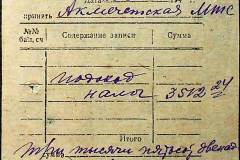 принять Акмечетская Мтс
№№ бал. сч
Содержание записи
Сумма
подоход
налог
3512 24
Итого
Три тысячи пятьсот двенад